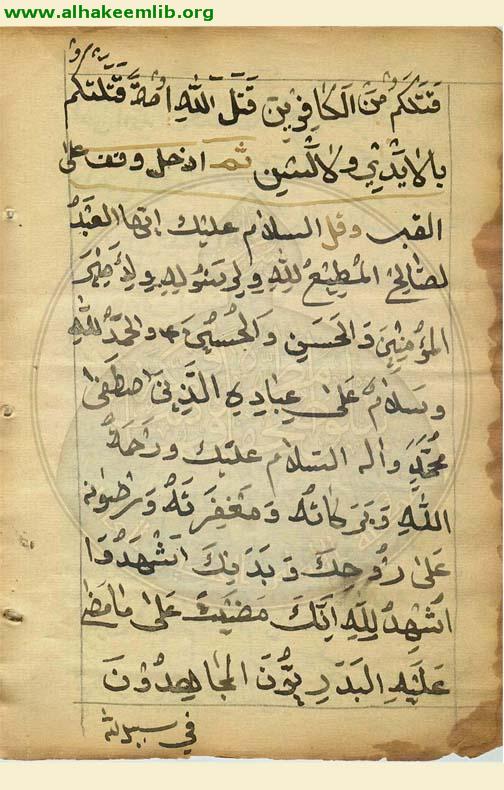 www.alhakeemlib.org
قَتَلَكُم مِنَ الكَافِرِينَ قَتَلَ اللّٰهُ اُمَّةً قَتَلَتكُم
بالاَيْدِي وَالاَلسُنِ ثم ادخل وقف على
القبر وقل السلام عليك ايّها العَبْدُ
لصَّالِحُ المُطِيعُ لِلّٰهِ وَلِرَسُولِهِ وَلِأَمِيرِ
المُؤْمِنِينَ وَالحَسَنِ وَالحُسَيْنِ ع وَالحَمْدُ للّٰهِ
وسَلَامٌ عَلىٰ عِبَادِهِ الَّذِينَ اصْطَفىٰ
مُحَمَّدٍ وآله السَّلامُ عَلَيك ورَحمَةُ
اللّٰهِ وَبَرَكَاتُهُ وَمَغْفِرَتُهُ وَرضوانه
عَلىٰ رُوْحِكَ وَبَدَنِكَ اَشْهَدُ وَا
اُشْهِدُ للّٰهِ اَنَّكَ مَضَيْتَ عَلىٰ مَا مَضىٰ
عَلَيْهِ البَدْرِيُّونَ المُجَاهِدُوْنَ
في سبيل الله